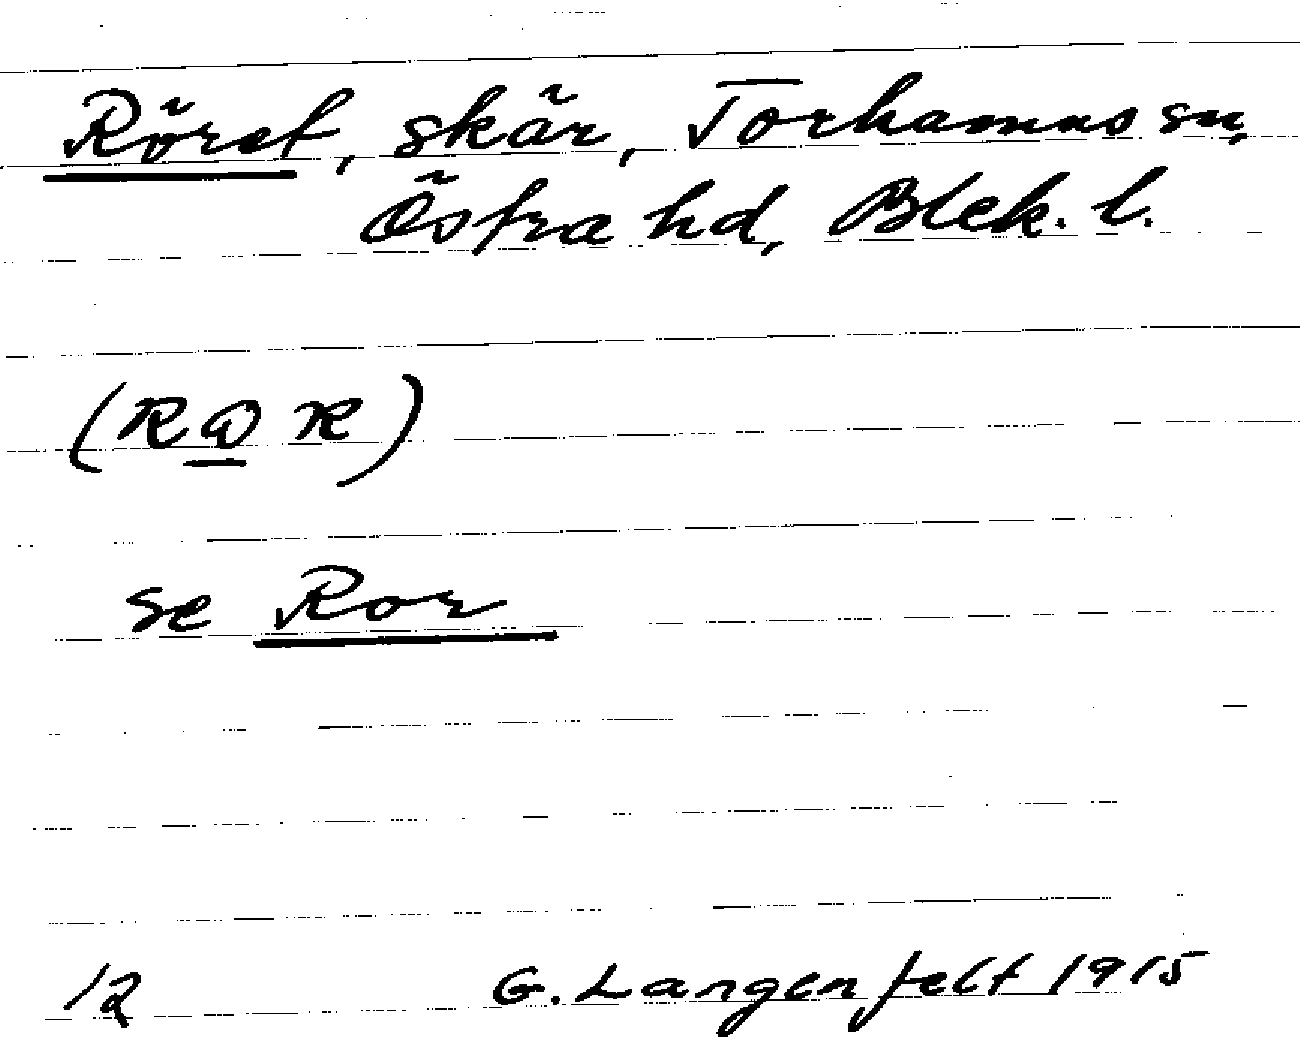 Röret, skär, Torhamns sn,
Östra hd, Blek. l.
se Ror
12 G. Langenfelt 1915